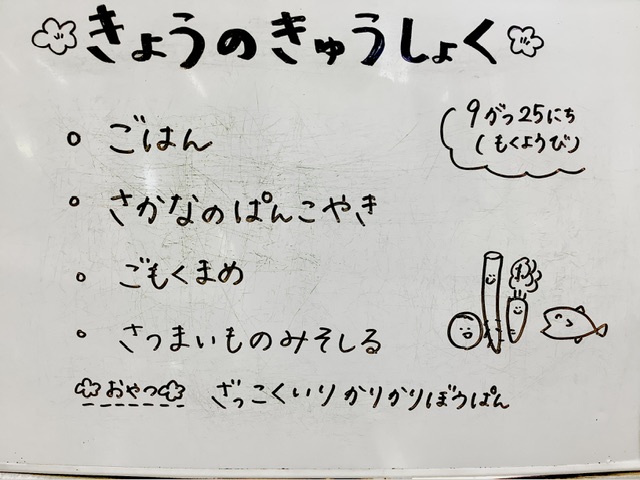 きょうのきゅうしょく
9がつ25にち
(もくようび)
ごはん
さかなのぱんこやき
ごもくまめ
さつまいものみそしる
おやつ ざっこくいりかりかりぼうぱん